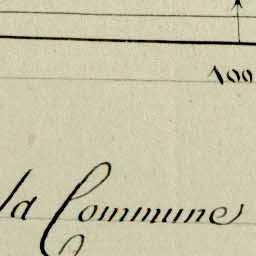 100
la Commune